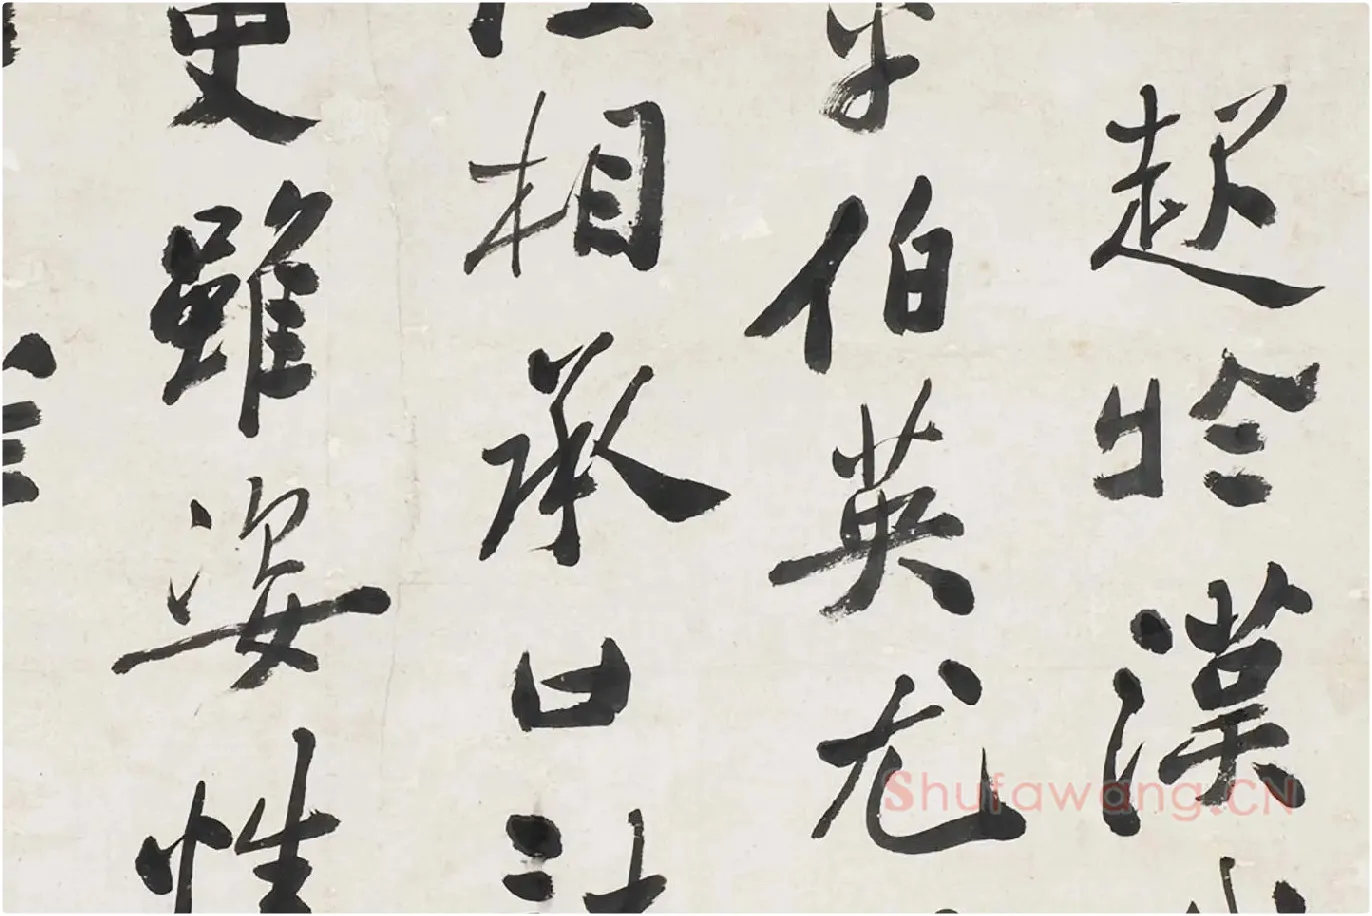 起於漢
伯英尤
相承曰
雖姿性
Shufawang.CN